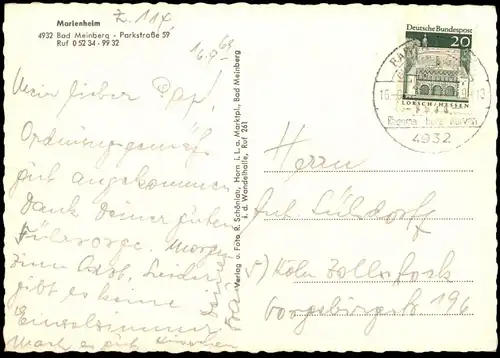 Marienheim
4932 Bad Meinberg - Parkstraße 59
Ruf 0 52 34 - 99 32
Z. 117
16.9.69
Mein lieber Papp!
Ordnungsgemäß
gut angekommen
Dank Deiner guten
Fürsorge. Morgen
zum Arzt. Leider
gibt es keine
Einzelzimmer
Mach es gut
Verlag u. Foto R. Schönlau, Horn i. L. a. Marktpl., Bad Meinberg
i. d. Wandelhalle, Ruf 261
Deutsche Bundespost
20
LORSCH/HESSEN
4932
Herrn
Lühdorff
5) Köln Zollstock
Vorgebirgstr 196